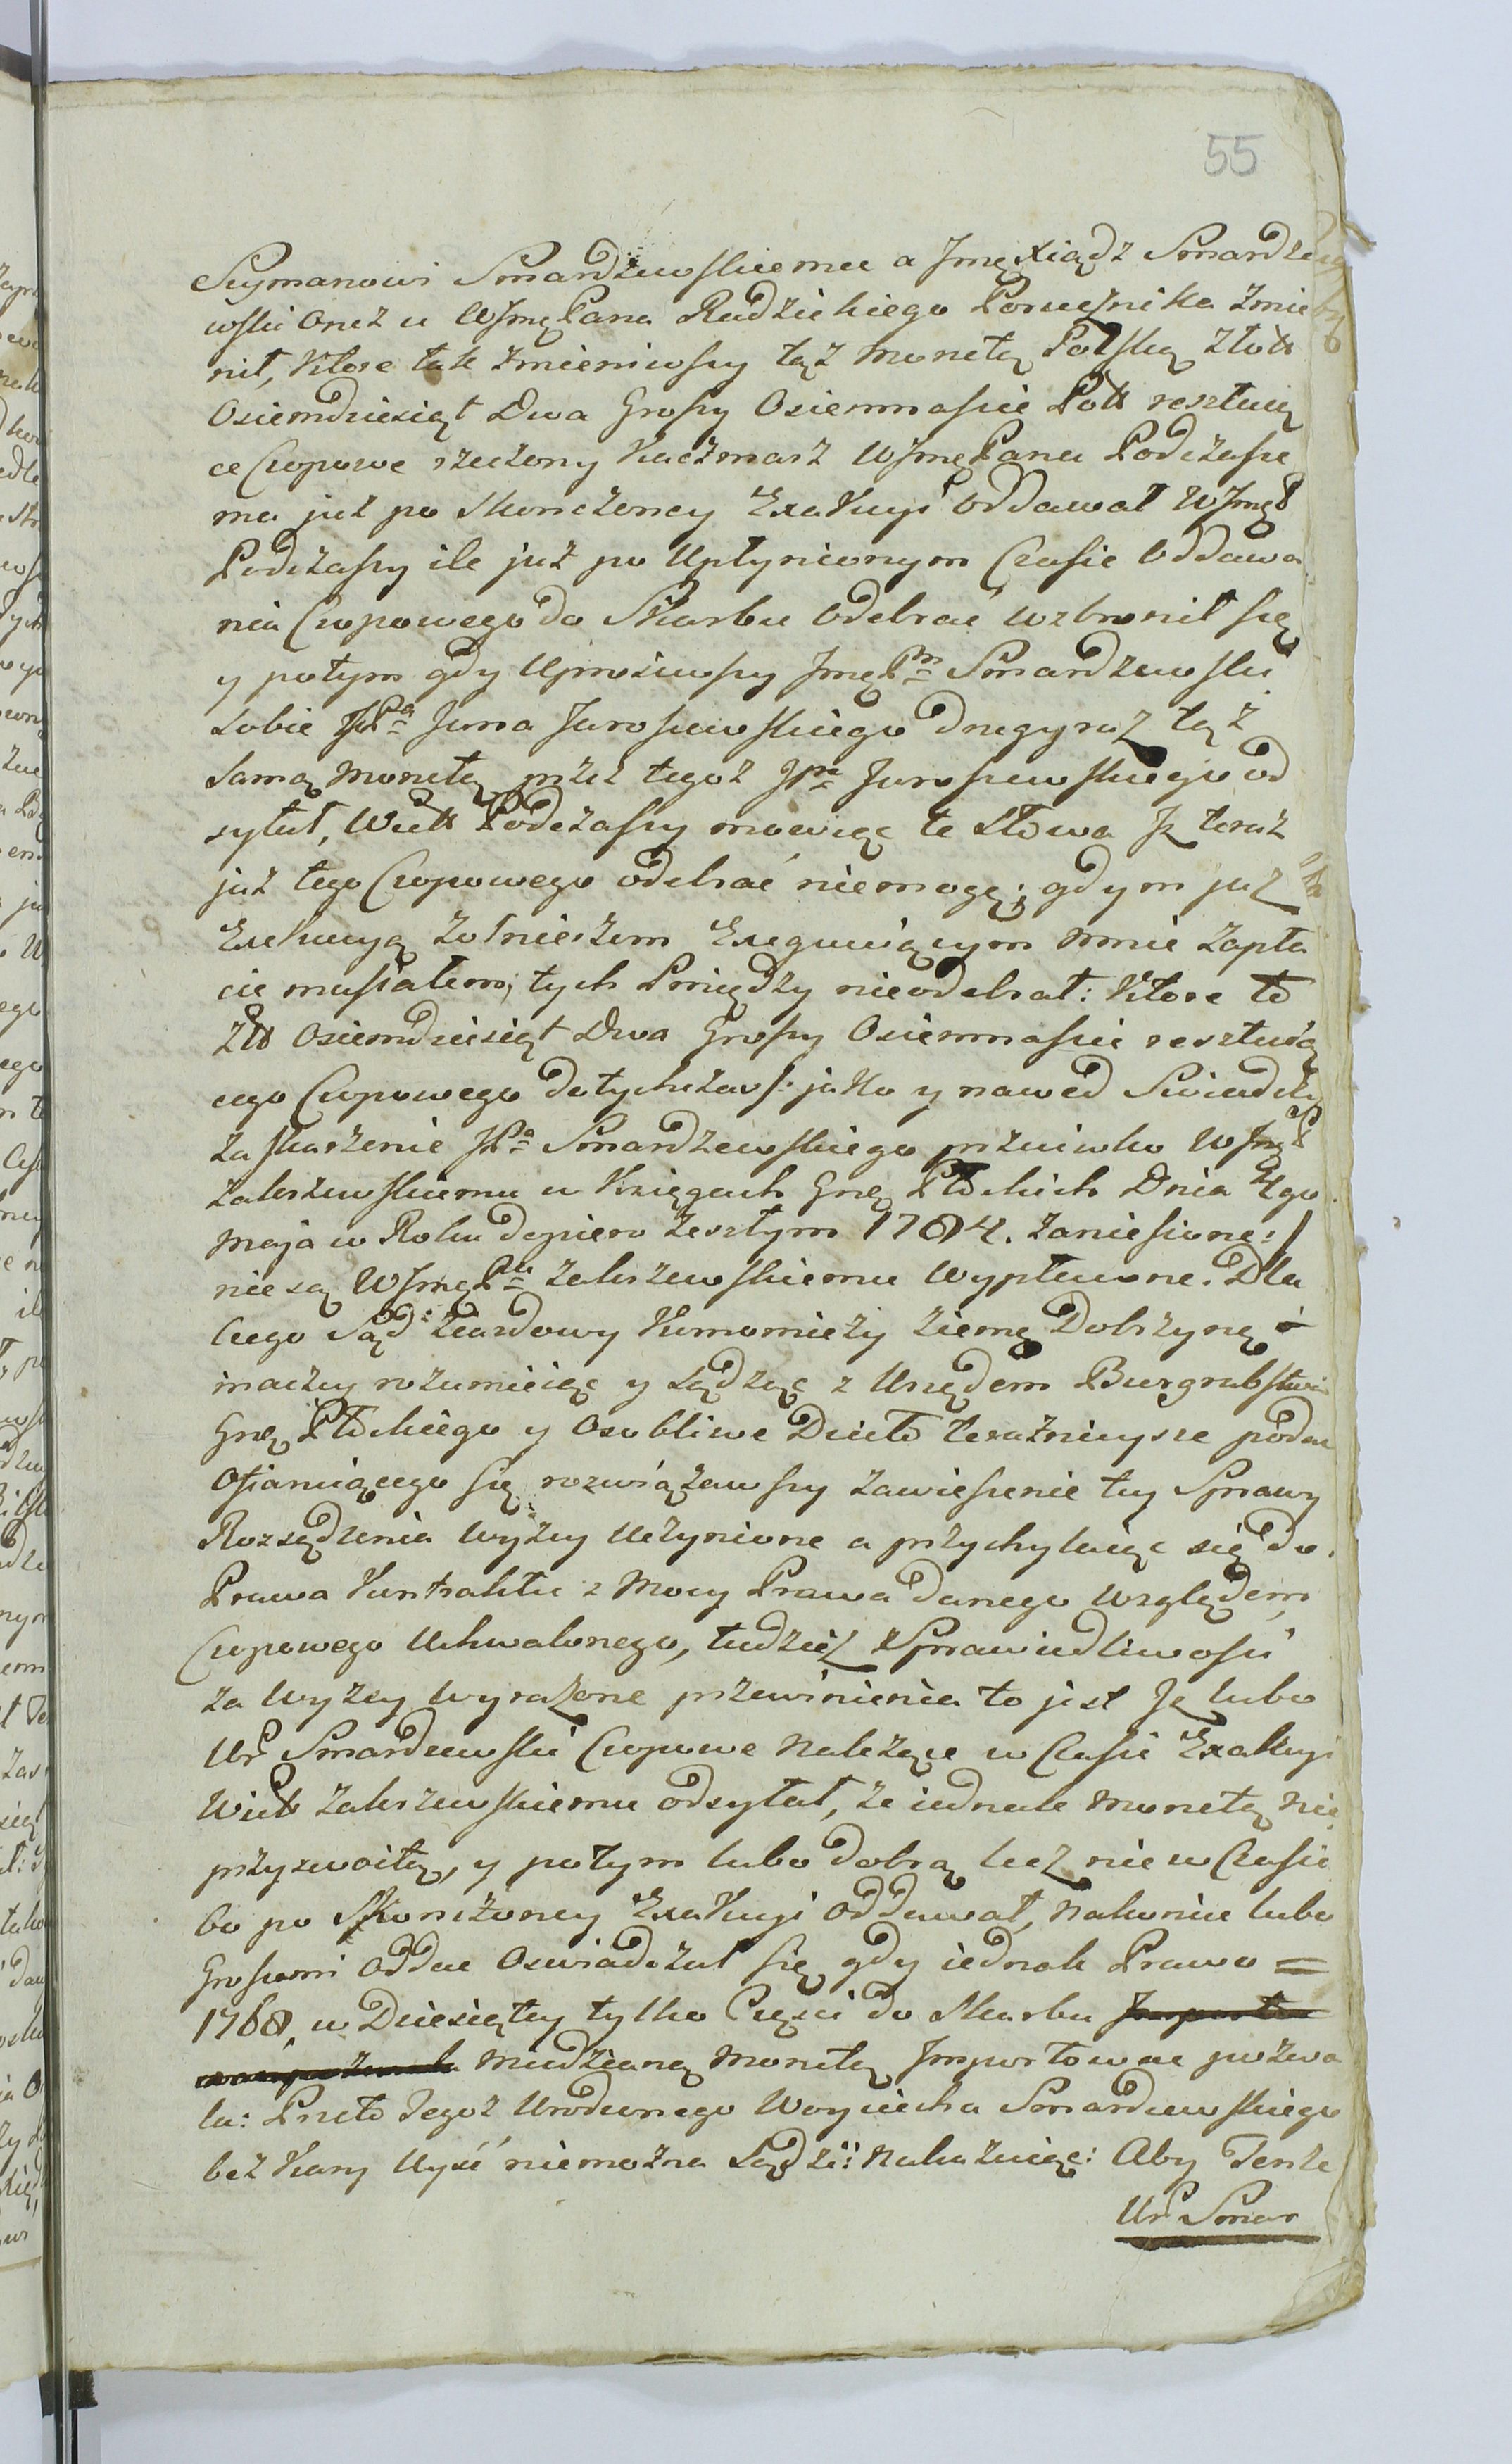 55
Szymanowi Smardzewskiemu a Jmę Xiądz Smardze
wski Onez u WJmę Pana Rudzickiego Porucznika zmie
nił, Ktore tak zmieniwszy tąż Monetą Polską Złott
Osiemdziesiąt Dwa Groszy Osiemnascie Poll resztuią
ce Czopowe rzeczony Kaczmarz WJmę Panu Podczasze
mu już po Skonczoney Exakcyi Oddawał WJmęP
Podczaszy ile już po Upłynionym Czasie Oddawa
nia Czopowego do Skarbu Odebrać wzbronił się
y potym gdy Uprosiwszy Jmę Pn Smardzewski
sobie JPa Jana Jaroszewskiego drugi raz tąż
samą Monetą przez tegoż JPa Jaroszewskiego od
syłał, Wielk Podczaszy mowiąc te Słowa Jz teraz
już tego Czopowego odebrać niemogę; gdym już
Exekucyą Żołnierzem Exequuiącym mnie zapła
cic musiałem; tych Pniędzy nieodebrał: Ktore to
Złt Osiemdziesiąt Dwa Groszy Osiemnascie resztuią
cego Czopowego dotychczas /: jako y nawed Swiadczy
zaskarzenie JPa Smardzewskiego przeciwko WJmęP
Zakrzewskiemu w Xięgach Grę Płockich Dnia 4go
Maja w Roku dopiero zeszłym 1784. zaniesione :/
nie są WJmę Pu Zakrzewskiemu Wypłacone. Dla
Czego Sąd Ziazdowy Kommorniczy Ziemę Dobrzynę i
naczey rozumieiąc y Sądząc z Urzędem Burgrabstwa
Grę Płockiego y Osobliwe Dzieło teraznieysze podac
Osiarniącego się rozwiązawszy zawieszenie tey Sprawy
Rozsądzenia wyżey Uczynione a przychylaiąc się do
Prawa Kontraktu z Mocy Prawa danego względem
Czopowego Uchwalonego, tudziesz Sprawiedliwosci
za wyżey wyrażone przewinienia to jest Jż lubo
Ur Smardzewski Czopowe Należące w Czasie Exakcyi
Wielk Zakrzewskiemu odsyłał, ze iednak Monetą nie
przyzwoitą, y potym lubo dobrą lecz nie w Czasie
bo po Skonczoney Exakcyi Oddawał, Nakoniec lubo
Groszami Oddac Oswiadczał się gdy iednak Prawo =
1768, w Dziesiątey tylko Części do Skarbu
Miedzianą Monetę Jmportowac pozwa
la: Przeto Tegoż Urodzonego Woyciecha Smardzewskiego
bez Kary Uyść niemożna Sądzi: Nakazuiąc: Aby Tenże
Ur Smar